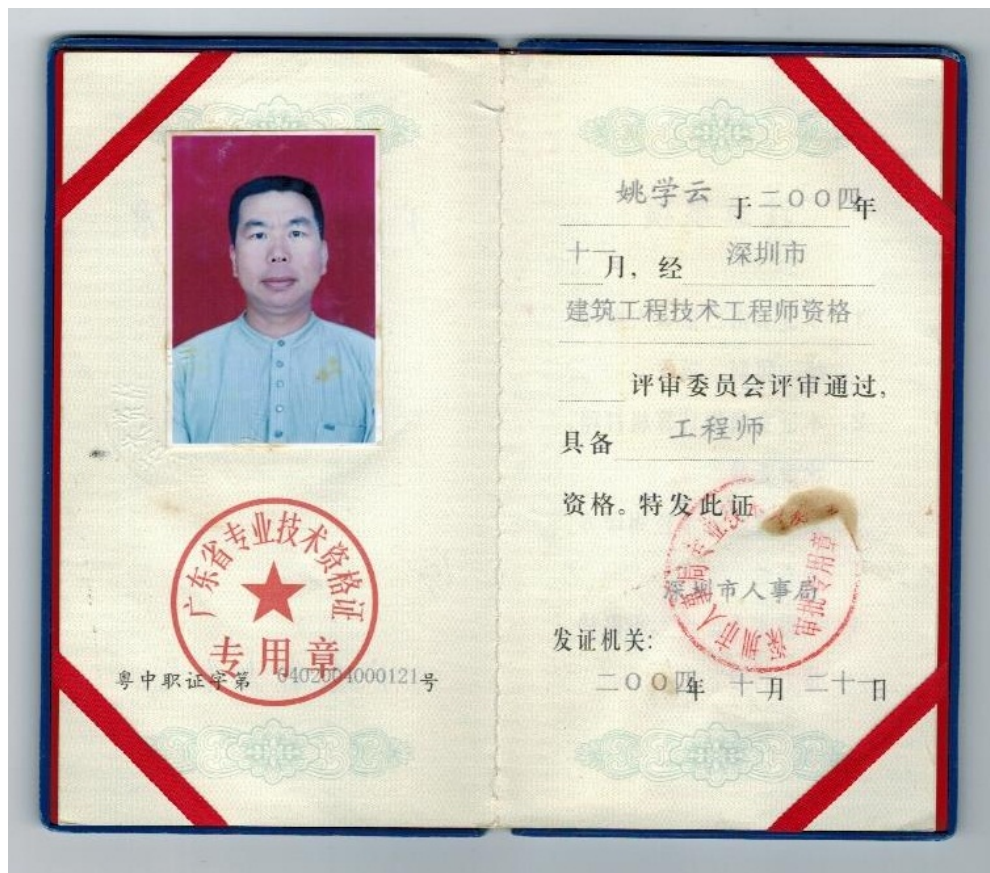 广东省专业技术资格证
专用章
粤中职证字第 0402004000121号
姚学云 于二〇〇四年
十一月，经 深圳市
建筑工程技术工程师资格
评审委员会评审通过，
具备 工程师
资格。特发此证
深圳市人事局
发证机关：
二〇〇四年 十二月 二十一日
深圳市人事局专业技
审批专用章